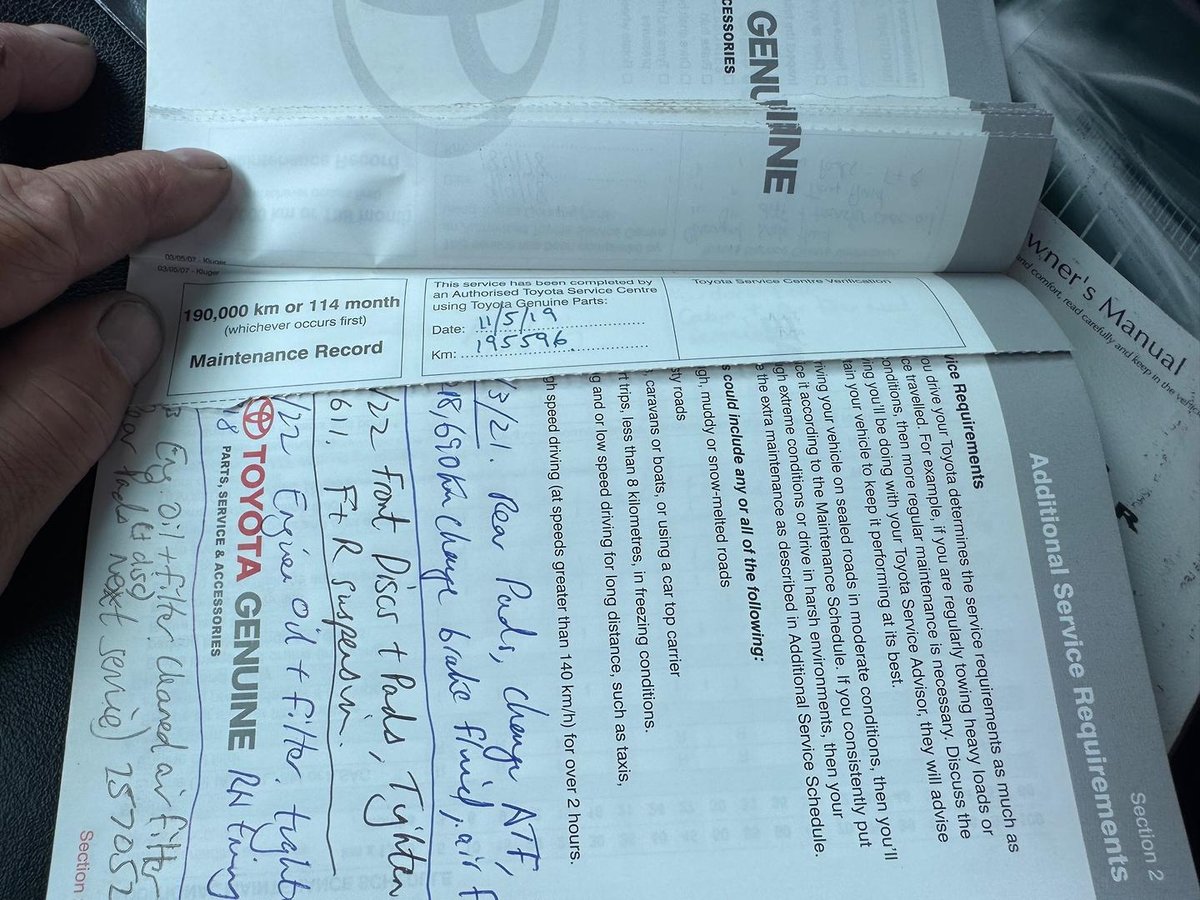 GENUINE
CESSORIES
03/05/07 - Kluger
03/05/07 - Kluger
190,000 km or 114 month
(whichever occurs first)
Maintenance Record
This service has been completed by
an Authorised Toyota Service Centre
using Toyota Genuine Parts:
Date: 11/5/19
Km: 195596
Toyota Service Centre Verification
wner's Manual
and comfort, read carefully and keep in the vehi
Section 2
Additional Service Requirements
vice Requirements
ou drive your Toyota determines the service requirements as much as
ce travelled. For example, if you are regularly towing heavy loads or
onditions, then more regular maintenance is necessary. Discuss the
ing you'll be doing with your Toyota Service Advisor, they will advise
tain your vehicle to keep it performing at its best.
riving your vehicle on sealed roads in moderate conditions, then you'll
ce it according to the Maintenance Schedule. If you consistently put
gh extreme conditions or drive in harsh environments, then your
e the extra maintenance as described in Additional Service Schedule.
s could include any or all of the following:
gh, muddy or snow-melted roads
sty roads
, caravans or boats, or using a car top carrier
rt trips, less than 8 kilometres, in freezing conditions.
g and or low speed driving for long distance, such as taxis,
gh speed driving (at speeds greater than 140 km/h) for over 2 hours.
/3/21. Rear Pads, change ATF,
218,690km change brake fluid, air f
/22 Front Discs + Pads, Tighten
611. F+R Suspension.
/22 Engine Oil + filter, tight
TOYOTA GENUINE RH timing
PARTS, SERVICE & ACCESSORIES
Eng. Oil + filter cleaned air filter
Pads next service) 257052
Section